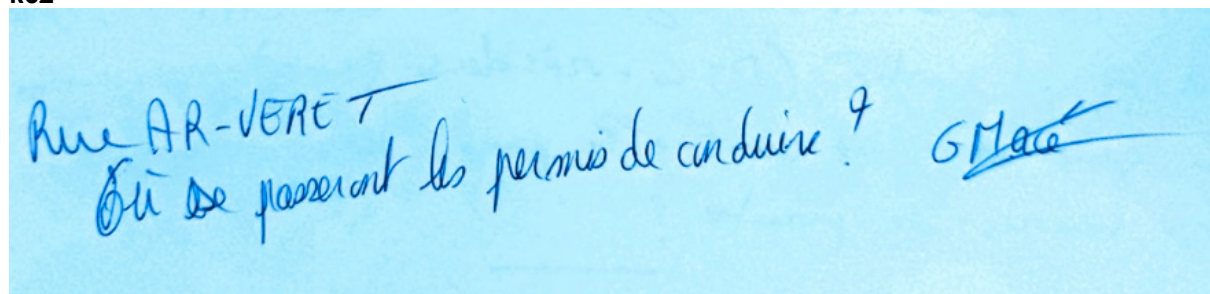 Rue AR-VERET
Où se passeront les permis de conduire ? GMacé